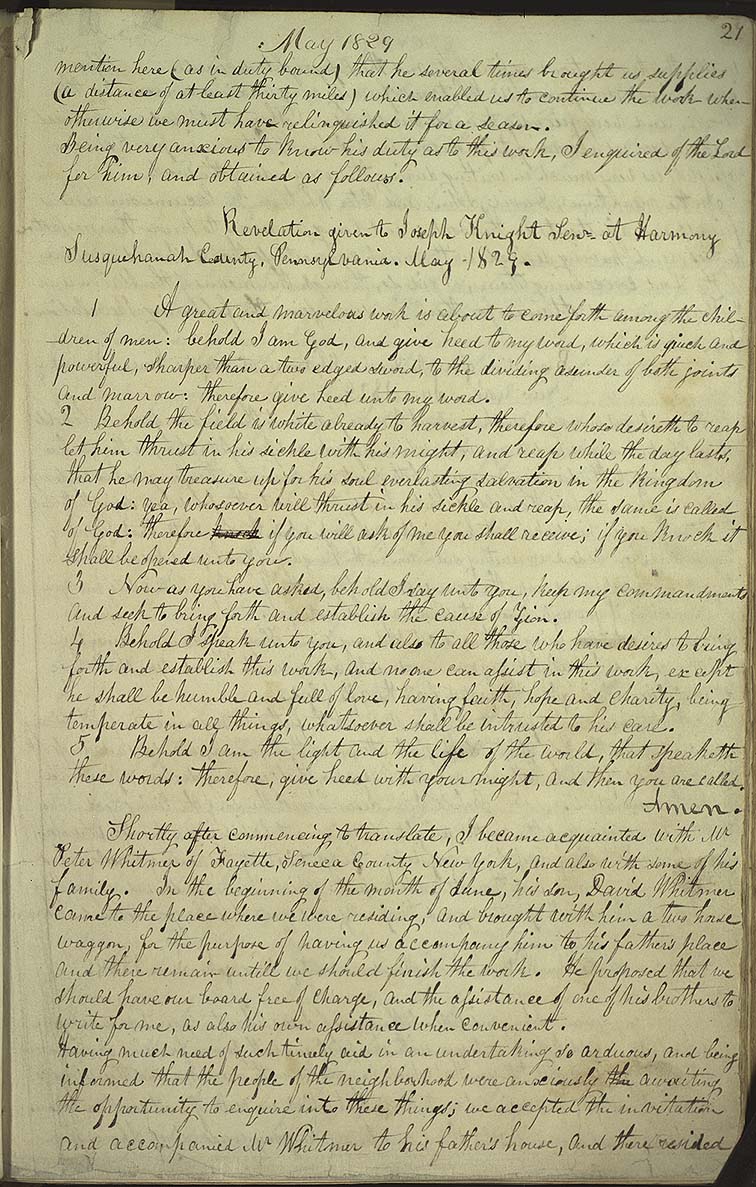 21
: May 1829
mention here (as in duty bound) that he several times brought us supplies
(a distance of at least thirty miles) which enabled us to continue the work when
otherwise we must have relinquished it for a season.
Being very anxious to know his duty as to this work, I enquired of the Lord
for him, and obtained as follows.
Revelation given to Joseph Knight Senr at Harmony
Susquehanah County, Pennsylvania. May 1829.
1 A great and marvelous work is about to come forth among the chil-
-dren of men: behold I am God, and give heed to my word, which is quick and
powerful, sharper than a two edged sword, to the dividing asunder of both joints
and marrow: therefore give heed unto my word.
2 Behold the field is white already to harvest, therefore whoso desireth to reap
let him thrust in his sickle with his might, and reap while the day lasts,
that he may treasure up for his soul everlasting salvation in the Kingdom
of God: yea, whosoever will thrust in his sickle and reap, the same is called
of God: therefore knock if you will ask of me you shall receive; if you knock it
shall be opened unto you.
3 Now as you have asked, behold I say unto you, keep my commandments
and seek to bring forth and establish the cause of Zion.
4 Behold I speak unto you, and also to all those who have desires to bring
forth and establish this work, and no one can assist in this work, except
he shall be humble and full of love, having faith, hope and charity, being
temperate in all things, whatsoever shall be intrusted to his care.
5 Behold I am the light and the life of the world, that speaketh
these words: therefore, give heed with your might, and then you are called.
Amen.
Shortly after commencing to translate, I became acquainted with Mr
Peter Whitmer of Fayette, Seneca County New York, and also with some of his
family. In the beginning of the month of June, his son, David Whitmer
came to the place where we were residing, and brought with him a two horse
waggon, for the purpose of having us accompany him to his father's place
and there remain untill we should finish the work. He proposed that we
should have our board free of charge, and the assistance of one of his brothers to
write for me, as also his own assistance when convenient.
Having much need of such timely aid in an undertaking so arduous, and being
informed that the people of the neighborhood were anxiously the awaiting
the opportunity to enquire into these things; we accepted the invitation
and accompanied Mr Whitmer to his father's house, and there resided